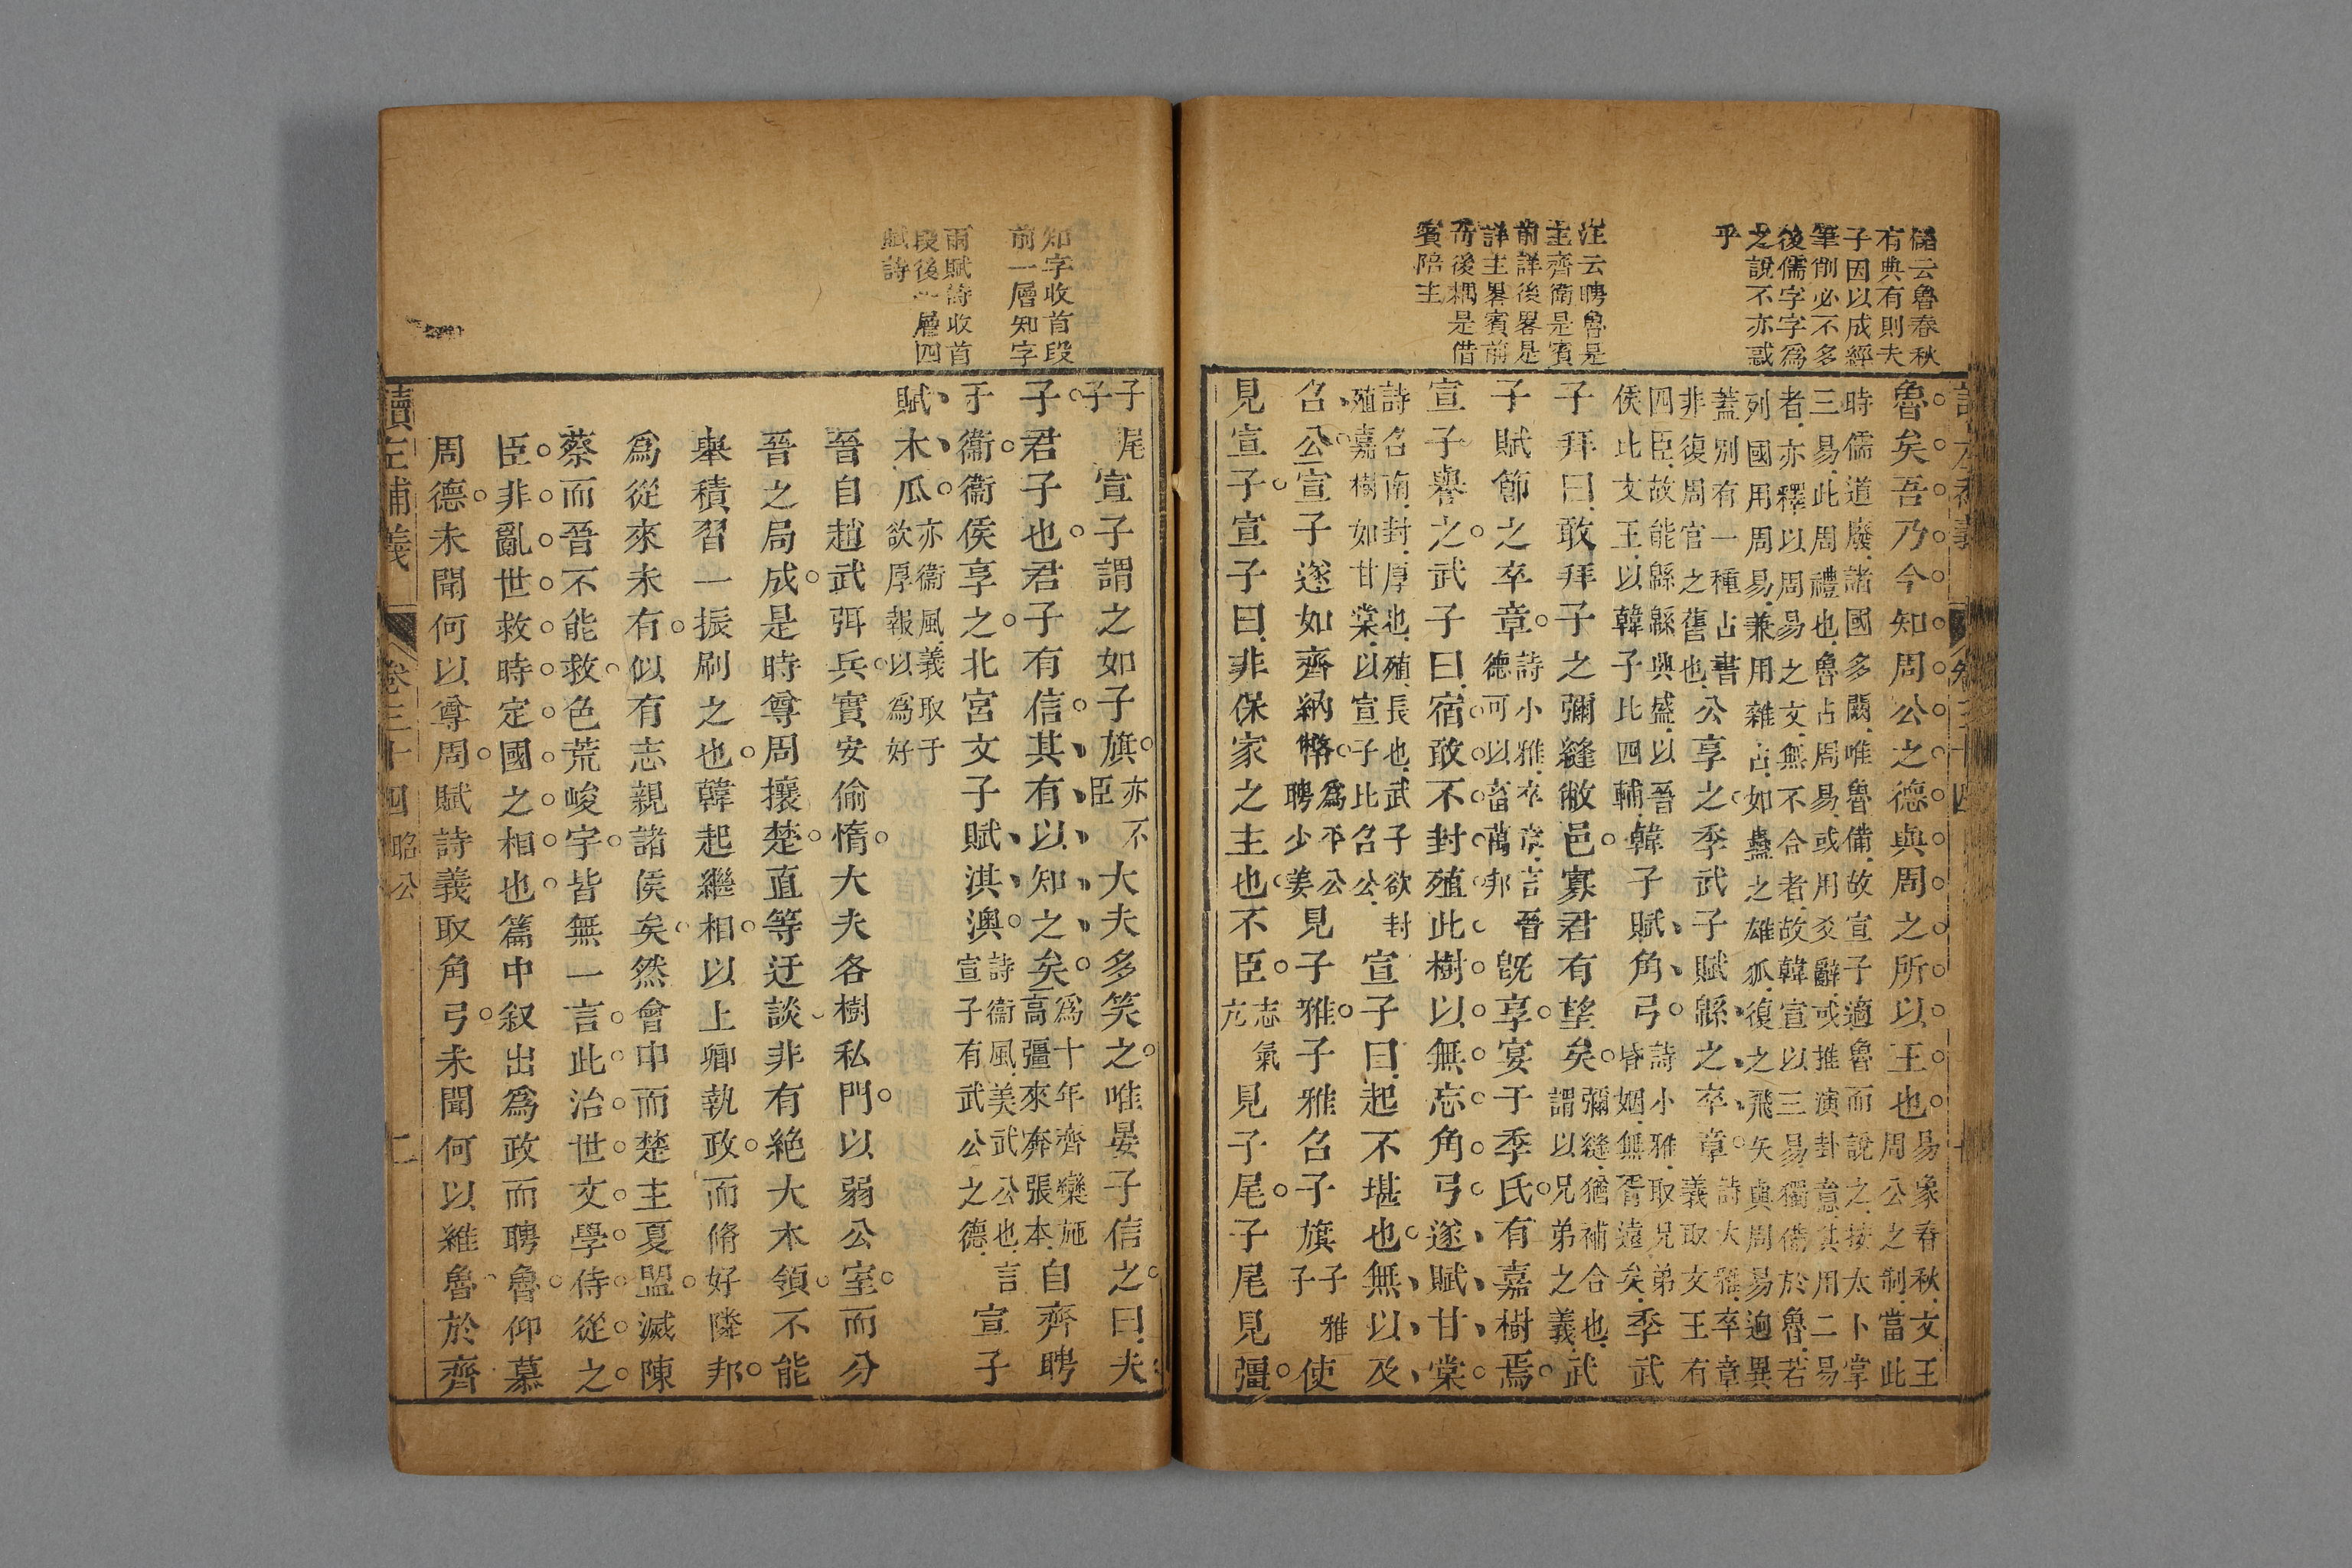 儲云魯春秋
有典有則夫
子因以成經
筆削必不多
後儒字字爲
之說不亦惑
乎
汪云聘魯是
主齊衛是賓
前詳後畧是
詳主畧賓前
奇後耦是借
賓陪主
讀左補義 卷三十四 十
魯矣吾乃今知周公之德與周之所以王也易象春秋文王周公之制當此
時儒道廢諸國多闕唯魯備故宣子適魯而說之按太卜掌三易此周禮也魯占周易或用爻辭或推演卦意其用二易
者亦釋以周易之文無不合者故韓宣以三易獨備於魯若列國用周易兼用雜占如蠱之雄狐復之飛矢與周易逈異
蓋別有一種占書非復周官之舊也公享之季武子賦緜之卒章詩大雅卒章義取文王有
四臣故能緜緜興盛以晉侯比文王以韓子比四輔韓子賦角弓詩小雅取兄弟昏姻無胥遠矣季武
子拜曰敢拜子之彌縫敝邑寡君有望矣彌縫猶補合也謂以兄弟之義武
子賦節之卒章詩小雅卒章言晉德可以畜萬邦旣享宴于季氏有嘉樹焉
宣子譽之武子曰宿敢不封殖此樹以無忘角弓遂賦甘棠
詩召南封厚也殖長也武子欲封殖嘉樹如甘棠以宣子比召公宣子曰起不堪也無以及
召公宣子遂如齊納幣爲平公聘少姜見子雅子雅召子旗子雅子使
見宣子宣子曰非保家之主也不臣志氣亢見子尾子尾見彊
知字收首段
前一層知字
兩賦詩收首
段後一層四
賦詩
子尾子宣子謂之如子旗亦不臣大夫多笑之唯晏子信之曰夫
子君子也君子有信其有以知之矣爲十年齊欒施高彊來奔張本自齊聘
于衞衞侯享之北宮文子賦淇澳詩衞風美武公也言宣子有武公之德宣子
賦木瓜亦衞風義取于欲厚報以爲好
晉自趙武弭兵實安偷惰大夫各樹私門以弱公室而分
晉之局成是時尊周攘楚直等迂談非有絶大本領不能
舉積習一振刷之也韓起繼相以上卿執政而脩好隣邦
爲從來未有似有志親諸侯矣然會申而楚主夏盟滅陳
蔡而晉不能救色荒峻宇皆無一言此治世文學侍從之
臣非亂世救時定國之相也篇中叙出爲政而聘魯仰慕
周德未聞何以尊周賦詩義取角弓未聞何以維魯於齊
讀左補義 卷三十四 昭公 二